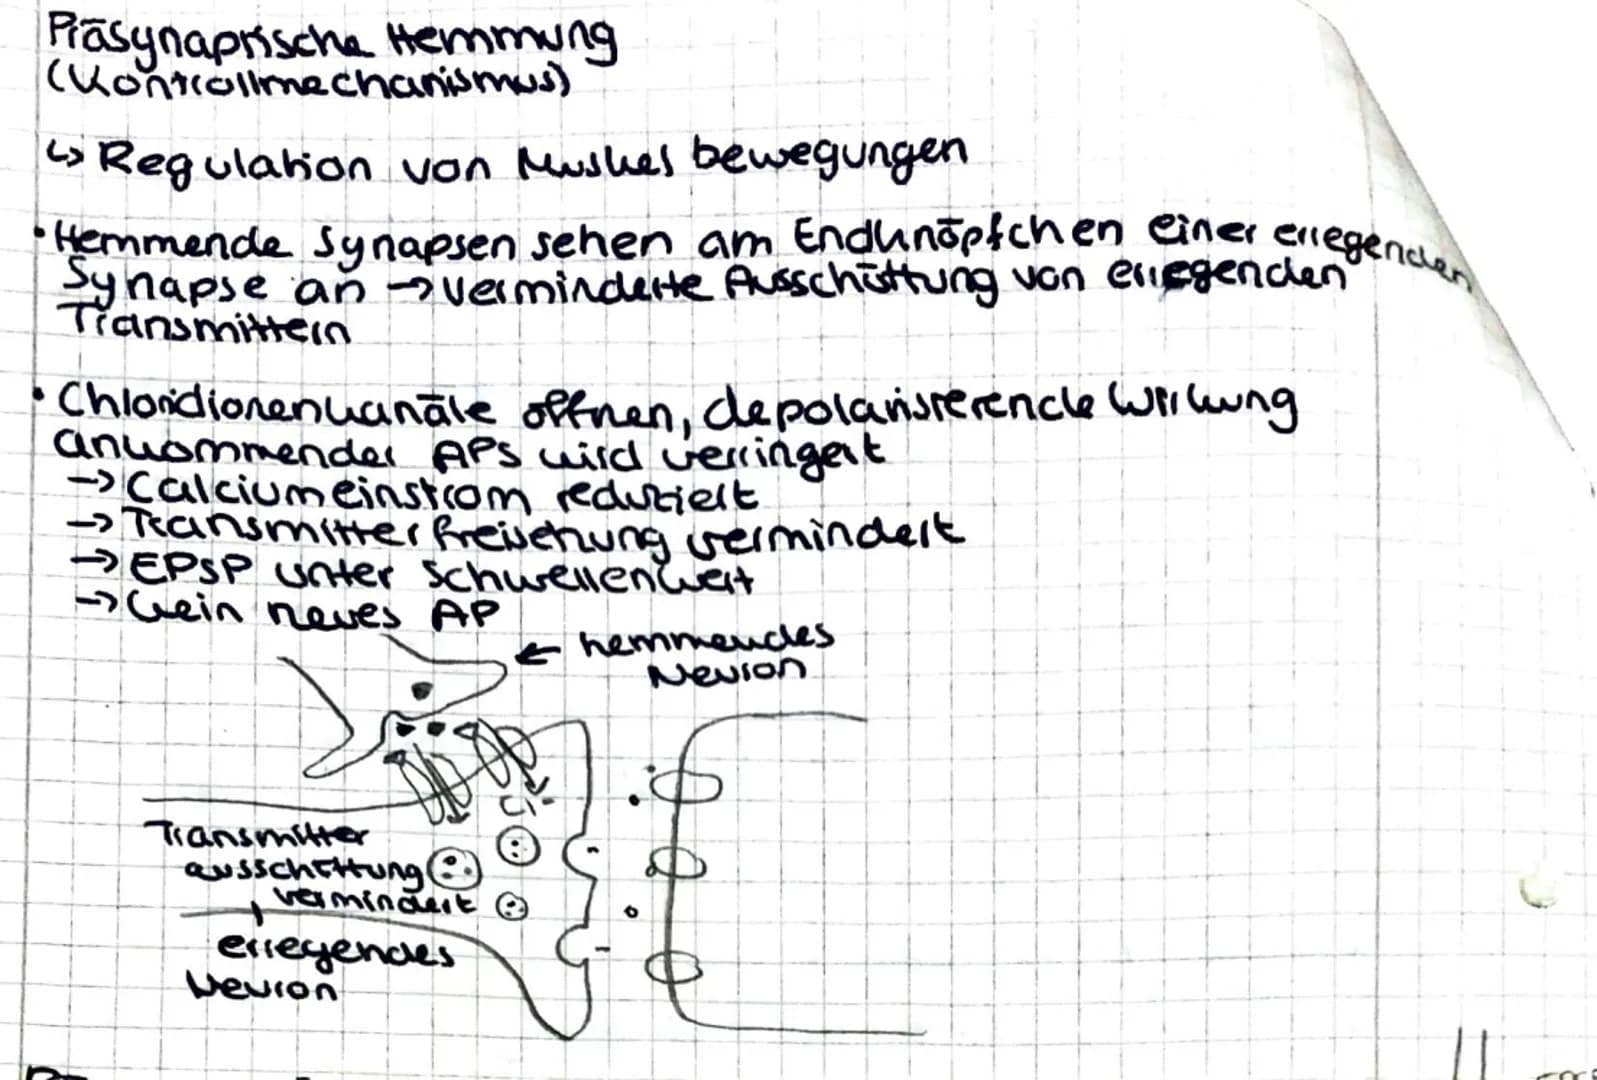 Präsynaptische Hemmung
(Kontrollmechanismus)
↳ Regulation von Muskelbewegungen
• Hemmende Synapsen setzen am Endknöpfchen einer erregenden
Synapse an → verminderte Ausschüttung von erregenden
Transmittern
• Chloridionenkanäle öffnen, depolarisierende Wirkung
ankommender APs wird verringert
→ Calciumeinstrom reduziert
→ Transmitterfreisetzung vermindert
→ EPSP unter Schwellenwert
→ kein neues AP
← hemmendes
Neuron
Cl-
Transmitter
ausschüttung
vermindert
erregendes
Neuron